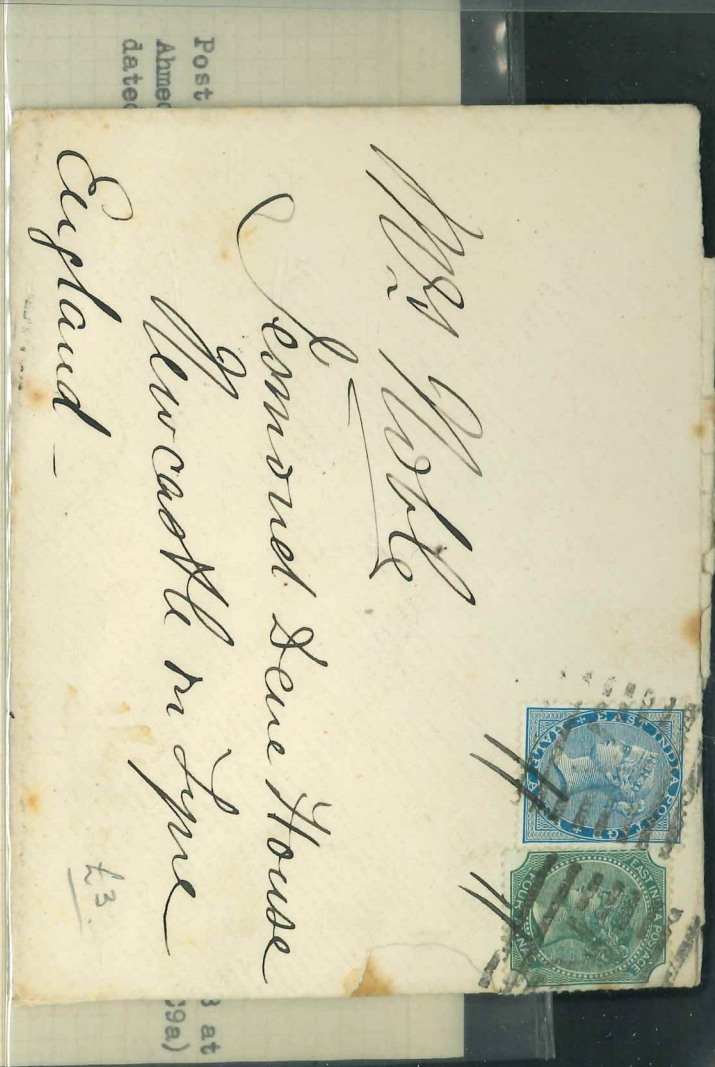 Post
Ahmed
dated
3 at
69a)
Mrs Noble
Jesmond Dene House
Newcastle on Tyne
England -
£3.
EAST INDIA POSTAGE
HALF ANNA
EAST INDIA POSTAGE
FOUR ANNAS